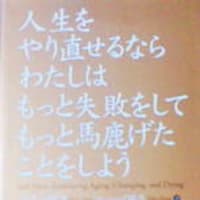 人生を
やり直せるなら
わたしは
もっと失敗をして
もっと馬鹿げた
ことをしよう
Aging, Changing, and Dying